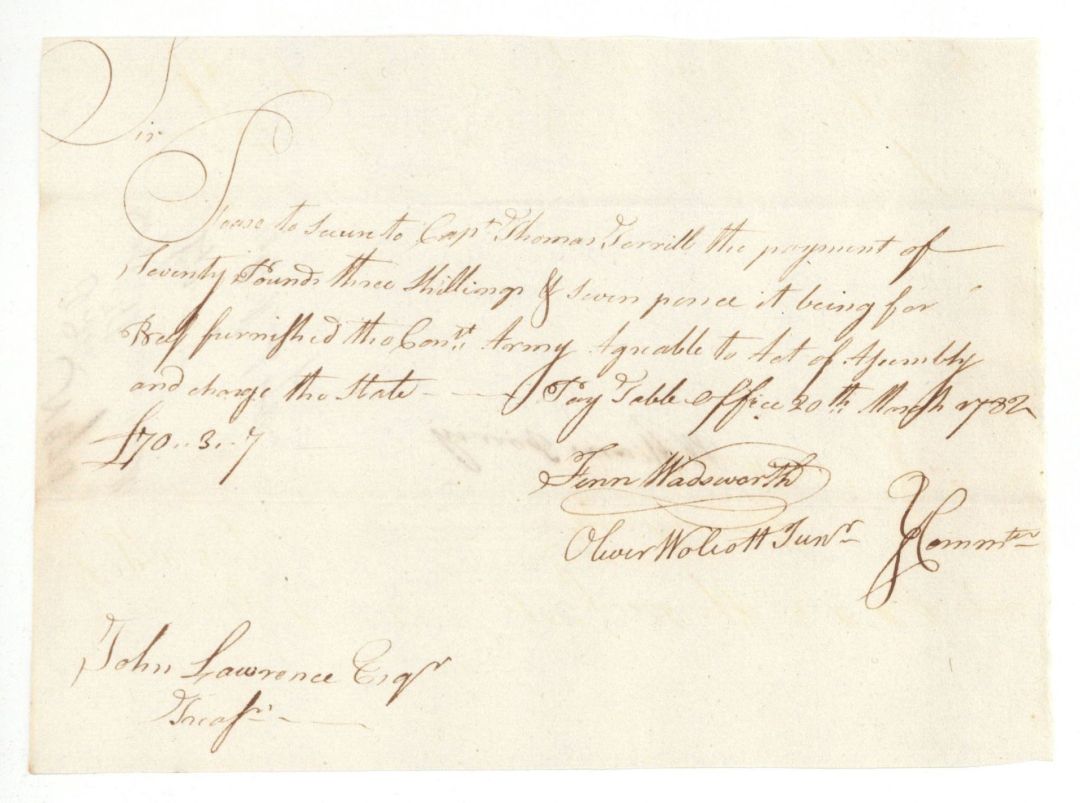 Sir
Please to secure to Capt Thomas Terrill the payment of
Seventy Pounds three Shillings & seven pence it being for
Beef furnished the Cont Army Agreable to Act of Assembly
and charge the State - Pay Table Office 20th March 1782
£70..3..7
Fenn Wadsworth
Oliver Wolcott Junr } Commtee
John Lawrence Esqr
Treasr